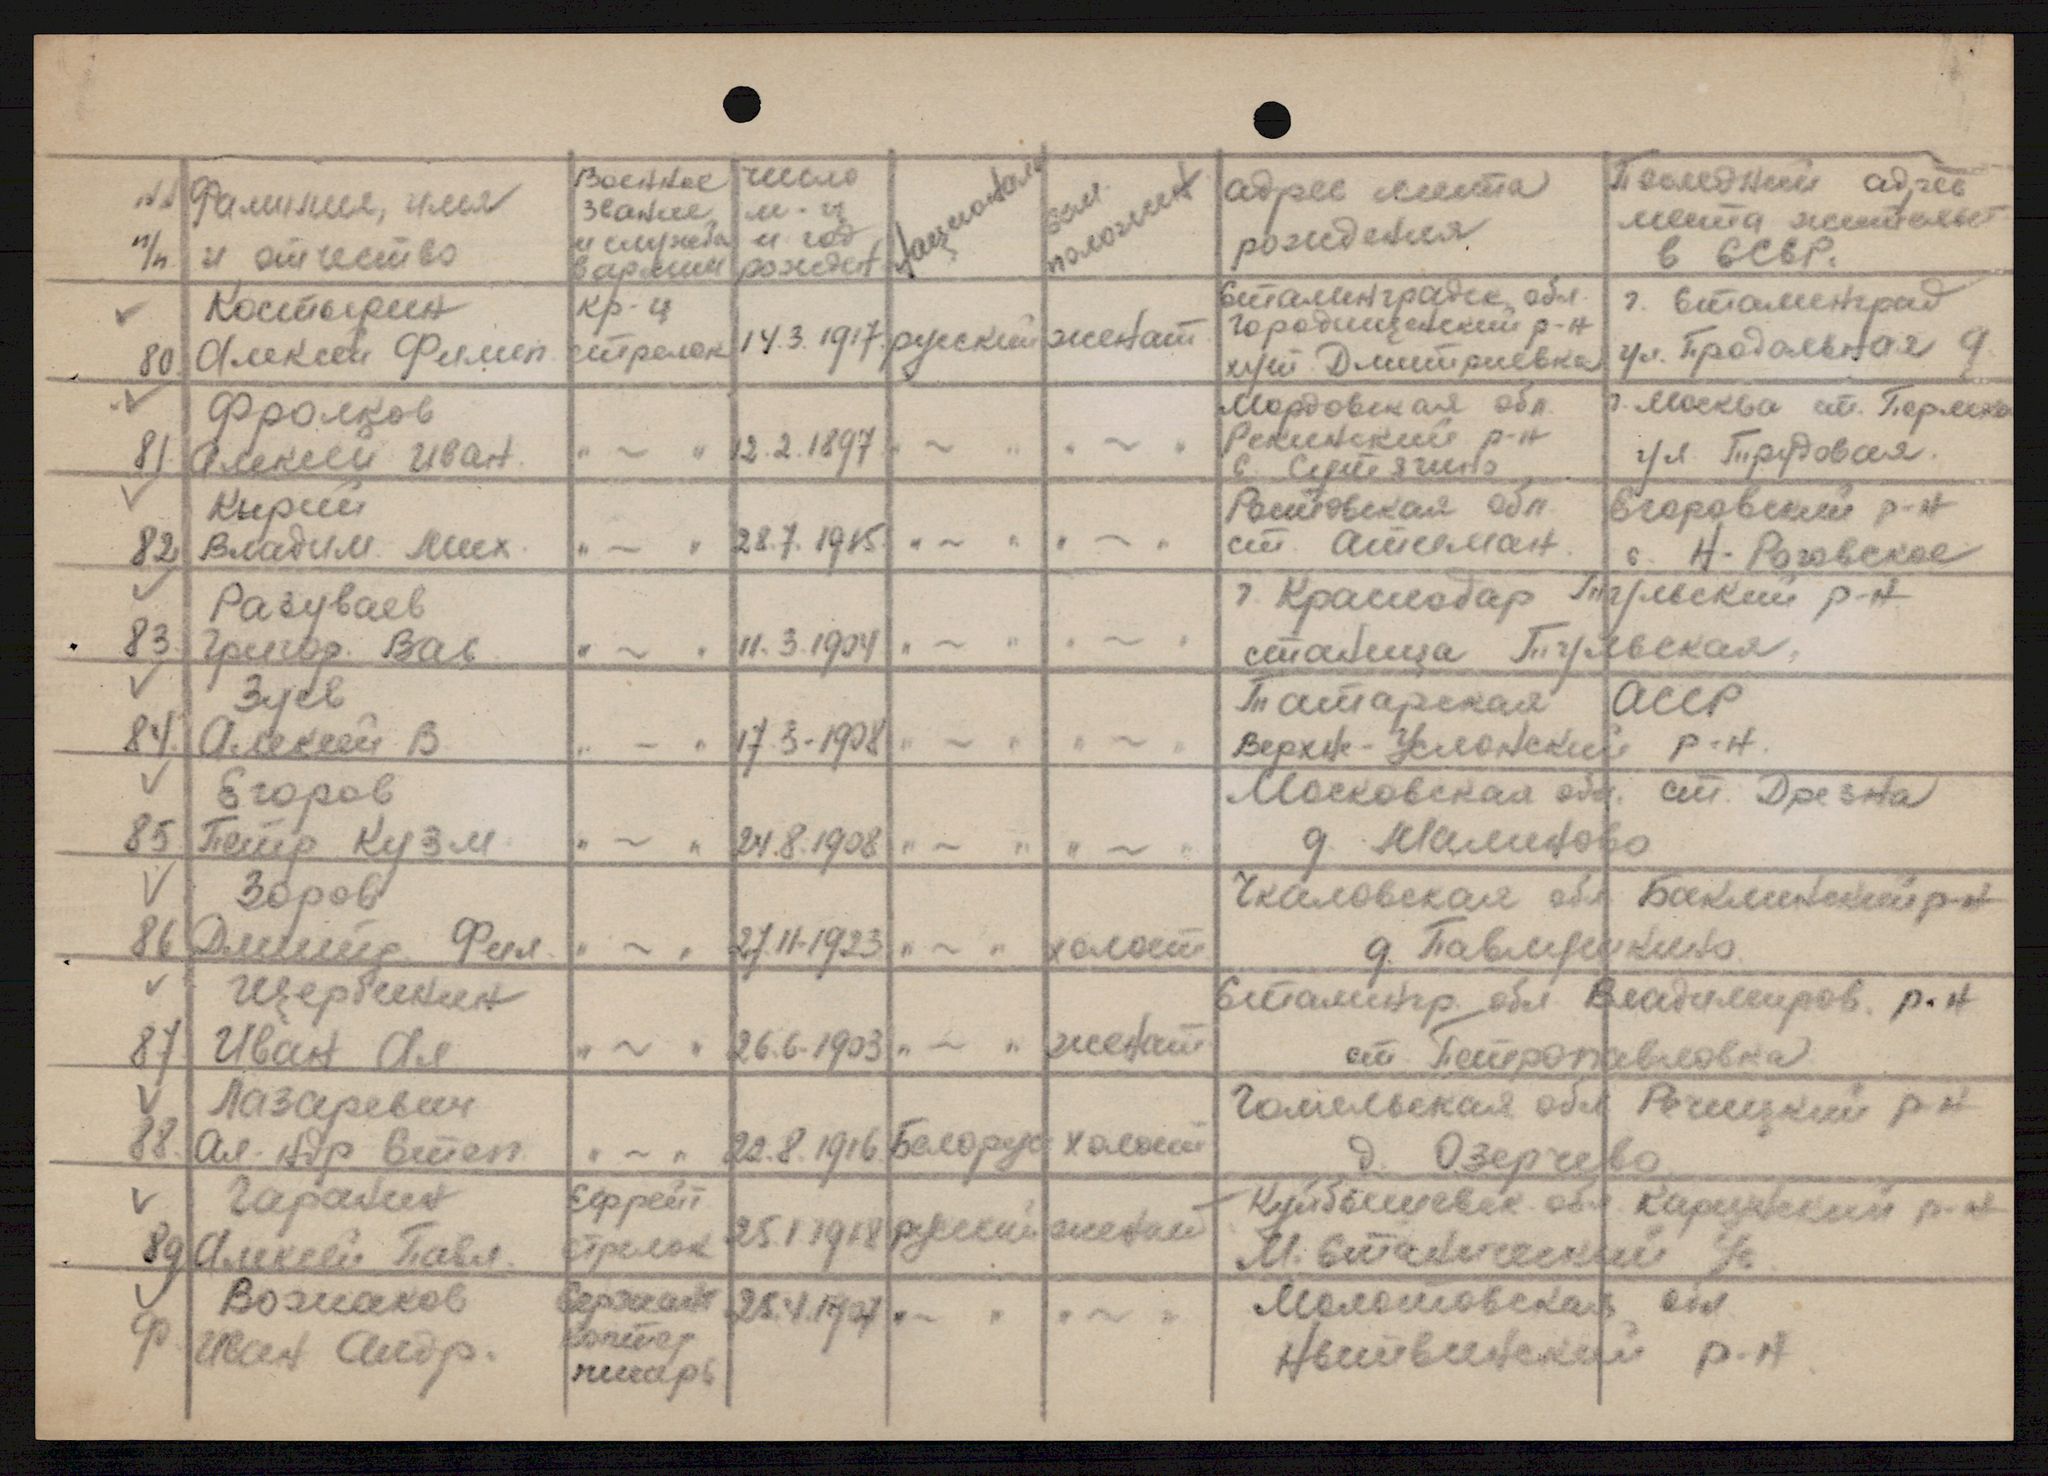 №№ Фамилия, имя Военное число национальн сем. адрес места Последний адрес
п/п и отчество звание м-ц положен рождения места жительст
и служба и год в СССР.
в армии рожден
Костырин кр-ц Сталинградск. обл. г. Сталинград
80. Алексей Филип. стрелок 14.3.1917. русский женат Городищенский р-н ул. Продольная 9.
хут. Дмитриевка
Фролков Мордовская обл. г. Москва ст.
81. Алексей Иван. " ~ " 12.2.1897 " ~ " " ~ " р-н ул. Трудовая.
с. Сутягино
Кирий Ростовская обл. Егоровский р-н
82 Владим. Мих. " ~ " 28.7.1915. " ~ " " ~ " ст. Атаман. с. Н-Роговское
Разуваев г. Краснодар Тульский р-н
83. Григор. Вас. " ~ " 11.3.1904 " ~ " " ~ " станица Тульская.
Зуев Татарская АССР
84. Алексей В " ~ " 17.3-1908 " ~ " " ~ " Верхн-Услонский р-н.
Егоров Московская обл. ст. Дрезна
85 Петр Кузм. " ~ " 24.8.1908 " ~ " " ~ " д. Малиново
Зоров Чкаловская обл Баклинский р-н
86 Дмитр. Фил. " ~ " 27.11-1923 " ~ " холост д. Павлушкино.
Щербинин Сталингр. обл Владимиров. р-н
87. Иван Ал " ~ " 26.6.1903 " ~ " женат ст. Петропавловка
Лазаревич Гомельская обл Речицкий р-н
88. Ал-ндр Степ. " ~ " 22.8.1916. Белорус холост д. Озерчево
Гаранин Ефрейт Куйбышевск. обл. р-н
89 Алексей Павл. стрелок 25.1.1918 русский женат
Вожаков Сержант 25.4.1904 " ~ " " ~ " Молотовская обл
90. Иван Андр. писарь Нытвинский р-н.